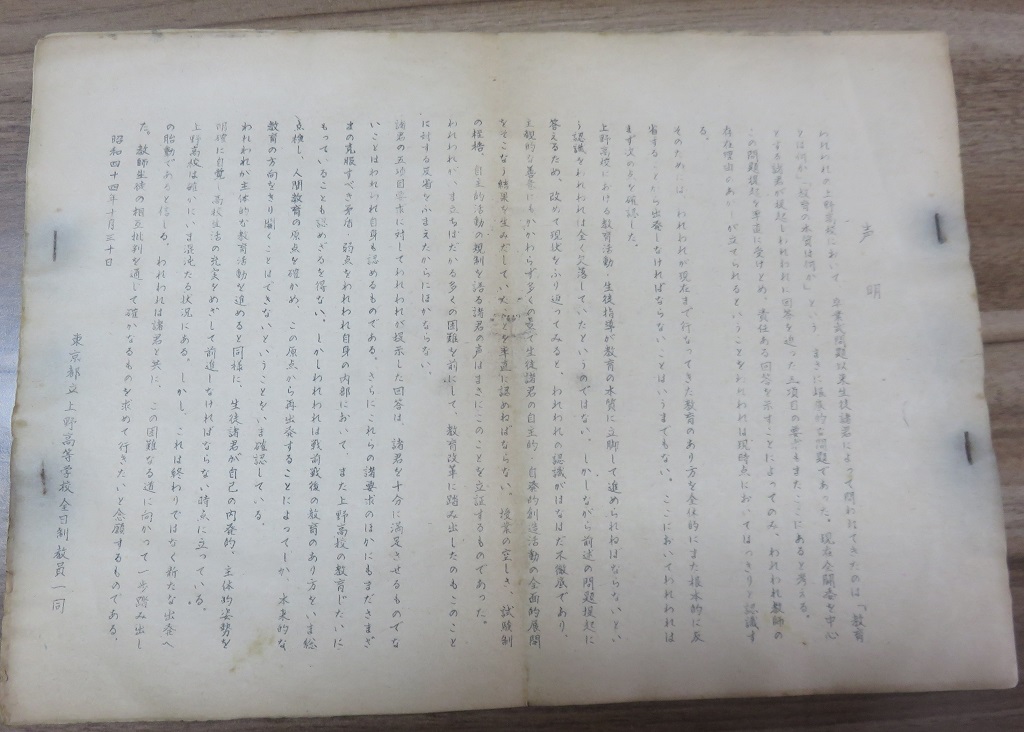 声明
われわれの上野高校において、卒業式問題以来生徒諸君によって問われてきたのは「教育
とは何か」「教育の本質は何か」という、まさに根本的な問題であった。現在全闘委を中心
とする諸君が提起しわれわれに回答を迫った五項目の要求もまたここにあると考える。
この問題提起を率直に受けとめ、責任ある回答を示すことによってのみ、われわれ教師の
存在理由のあかしが立てられるということをわれわれは現時点においてはっきりと認識す
る。
そのためには、われわれが現在まで行なってきた教育のあり方を全体的にまた根本的に反
省することから出発しなければならないことはいうまでもない。ここにおいてわれわれは
まず次の点を確認した。
上野高校における教育活動・生徒指導が教育の本質に立脚して進められねばならないとい
う認識をわれわれは全く欠落していたというのではない。しかしながら前述の問題提起に
答えるため、改めて現状をふり返ってみると、われわれの認識がはなはだ不徹底であり、
主観的な善意にもかかわらず多くの点で生徒諸君の自主的・自発的創造活動の全面的展開
をそこなう結果を生みだしていたことを率直に認めねばならない。授業の空しさ、試験制
の桎梏、自主的活動の規制を語る諸君の声はまさにこのことを立証するものであった。
われわれがいま立ちはだかる多くの困難を前にして、教育改革に踏み出したのもこのこと
に対する反省をふまえたからにほかならない。
諸君の五項目要求に対してわれわれが提示した回答は、諸君を十分に満足させるものでな
いことはわれわれ自身も認めるものである。さらにこれらの諸要求のほかにもまださまざ
まの克服すべき矛盾、弱点をわれわれ自身の内部において、また上野高校の教育じたいに
もっていることも認めざるを得ない。しかしわれわれは戦前戦後の教育のあり方をいま総
点検し、人間教育の原点を確かめ、この原点から再出発することによってしか、本来的な
教育の方向をきり開くことはできないということを、いま確認している。
われわれが主体的な教育活動を進めると同様に、生徒諸君が自己の内発的、主体的姿勢を
明確に自覚し高校生活の充実をめざして前進しなければならない時点に立っている。
上野高校は確かにいま混沌たる状況にある。しかし、これは終わりではなく新たな出発へ
の胎動であると信じる。われわれは諸君と共に、この困難なる道に向かって一歩踏み出し
た。教師生徒の相互批判を通じて確かなるものを求めて行きたいと念願するものである。
昭和四十四年十月三十日
東京都立上野高等学校全日制教員一同